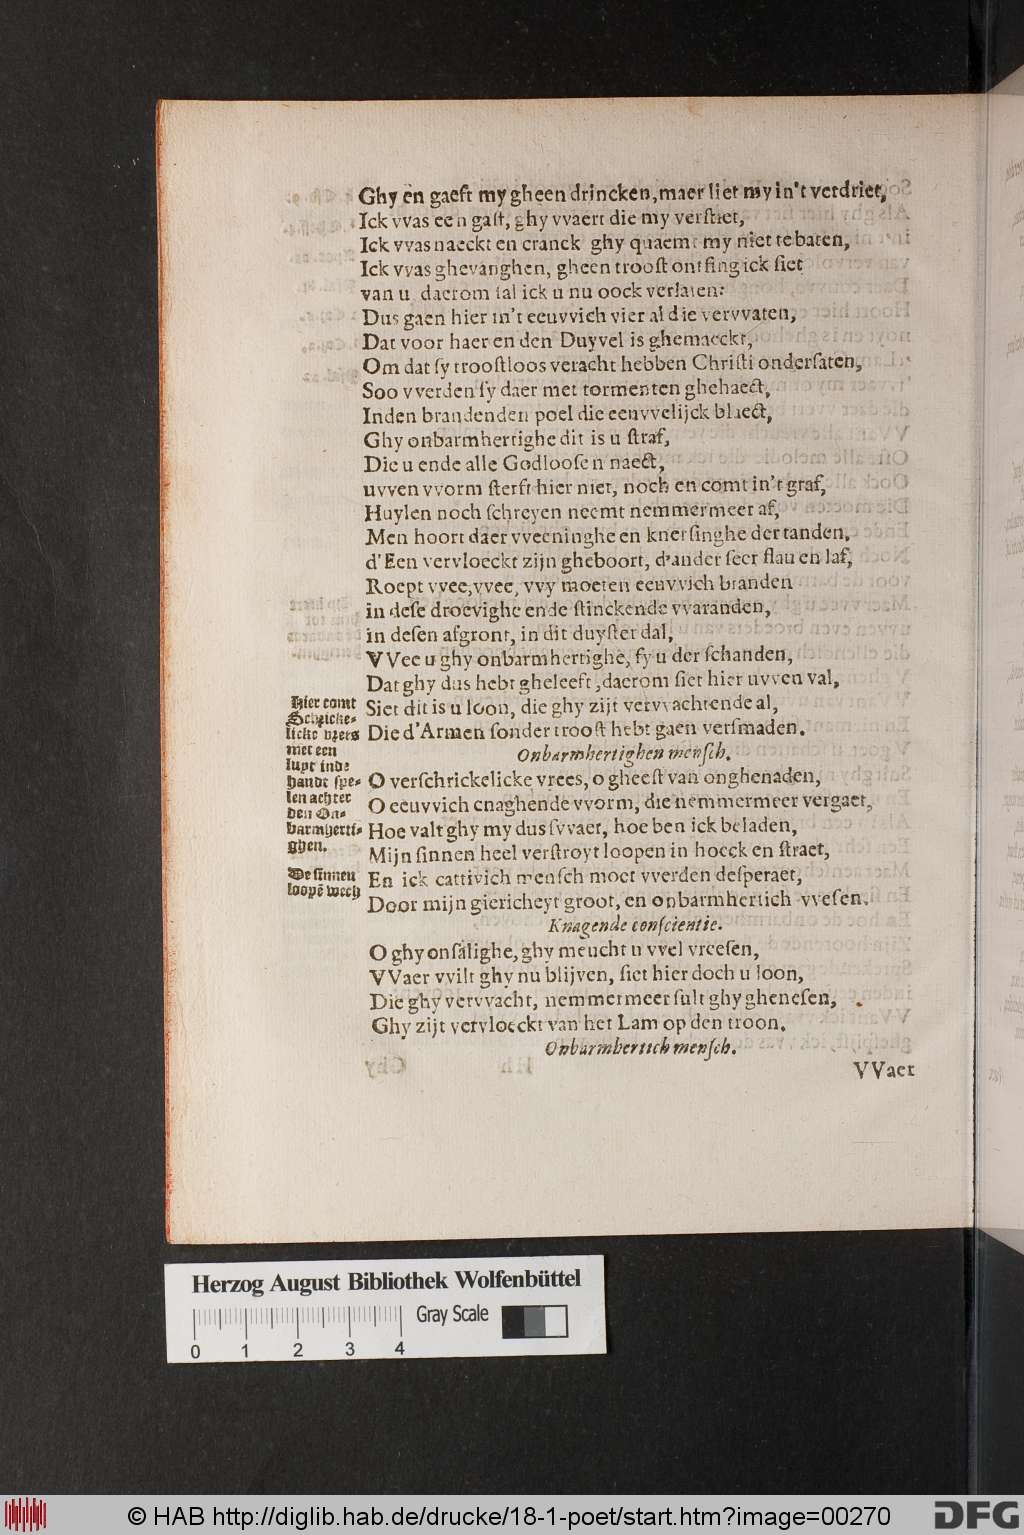 Ghy en gaeft my gheen drincken, maer liet my in't verdriet,
Ick vvas een gast, ghy vvaert die my verstiet,
Ick vvas naeckt en cranck ghy quaemt my niet te baten,
Ick vvas ghevanghen, gheen troost ontfing ick siet
van u, daerom sal ick u nu oock verlaten:
Dus gaen hier in't eeuvvich vier al die vervvaten,
Dat voor haer en den Duyvel is ghemaeckt,
Om dat sy troostloos veracht hebben Christi ondersaten,
Soo vverden sy daer met tormenten ghehaect,
Inden brandenden poel die eeuvvelijck blaect,
Ghy onbarmhertighe dit is u straf,
Die u ende alle Godloosen naect,
uvven vvorm sterft hier niet, noch en comt in't graf,
Huylen noch schreyen neemt nemmermeer af,
Men hoort daer vveeninghe en knersinghe der tanden,
d'Een vervloeckt zijn gheboort, d'ander seer flau en laf,
Roept vvee, vvee, vvy moeten eeuvvich branden
in dese droevighe ende stinckende vvaranden,
in desen afgront, in dit duyster dal,
VVee u ghy onbarmhertighe, sy u der schanden,
Dat ghy dus hebt gheleeft, daerom siet hier uvven val,
Siet dit is u loon, die ghy zijt vervvachtende al,
Die d'Armen sonder troost hebt gaen versmaden.
Onbarmhertighen mensch.
Hier comt
Schricke-
licke vrees
met een
lupt inde
handt spe-
len achter
den On-
barmherti-
ghen.
O verschrickelicke vrees, o gheest van onghenaden,
O eeuvvich cnaghende vvorm, die nemmermeer vergaet,
Hoe valt ghy my dus svvaer, hoe ben ick beladen,
Mijn sinnen heel verstroyt loopen in hoeck en straet,
De sinnen
loopē wech
En ick cattivich mensch moet vverden desperaet,
Door mijn giericheyt groot, en onbarmhertich vvesen.
Knagende conscientie.
O ghy onsalighe, ghy meucht u vvel vreesen,
VVaer vvilt ghy nu blijven, siet hier doch u loon,
Die ghy vervvacht, nemmermeer sult ghy ghenesen,
Ghy zijt vervloeckt van het Lam op den troon.
Onbarmhertich mensch.
VVaer
Herzog August Bibliothek Wolfenbüttel
Gray Scale
0 1 2 3 4
© HAB http://diglib.hab.de/drucke/18-1-poet/start.htm?image=00270
DFG